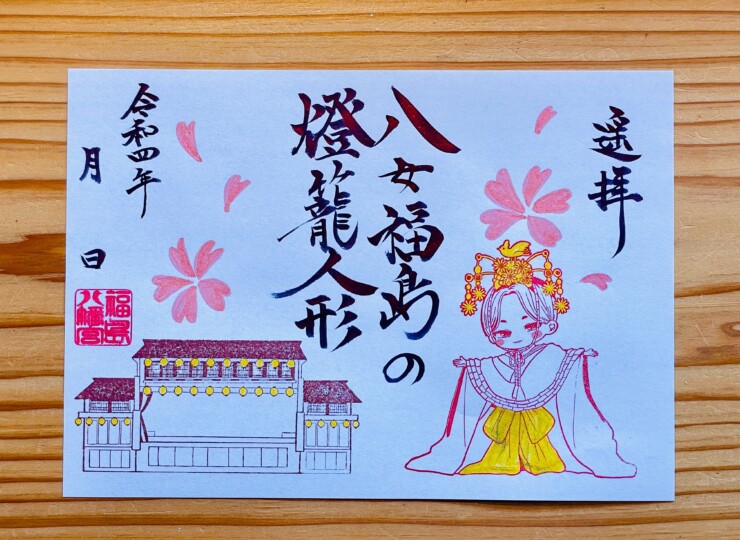 遥拝
八女福島の
燈籠人形
令和四年
月 日
福島
八幡宮